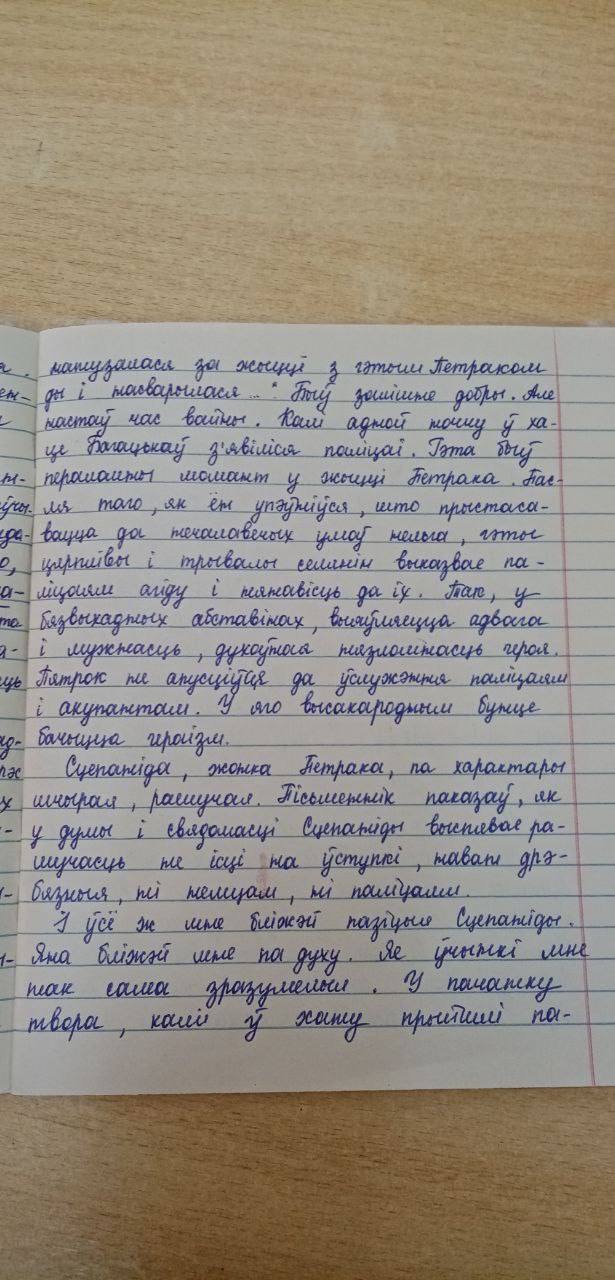 матузалася за жыццё з гэтым Петраком
ды і насварылася..." Быў залішне добры. Але
настаў час вайны. Калі адной ночку ў ха-
це Багацькаў з'явіліся паліцаі. Гэта быў
пераломны момант у жыцці Петрака. Пас-
ля таго, як ён упэўніўся, што прыстаса-
вацца да нечалавечых умоў нельга, гэты
цярплівы і трывалы селянін выказвае па-
ліцаям агіду і нянавісць да іх. Так, у
бязвыхадных абставінах, выяўляецца адвага
і мужнасць, духоўная нязломнасць героя.
Пятрок не апусціўся да ўслужэння паліцаям
і акупантам. У яго высакародным бунце
бачыцца гераізм.
Сцепаніда, жонка Петрака, па характары
шчырая, рашучая. Пісьменнік паказаў, як
у думы і свядомасці Сцепаніды выспявае ра-
шучасць не ісці на ўступкі, нават дрэ-
бязныя, ні немцам, ні паліцаям.
І ўсё ж мне бліжэй пазіцыя Сцепаніды.
Яна бліжэй мне па духу. Яе ўчынкі мне
так сама зразумелыя. У пачатку
твора, калі ў хату прыйшлі па-